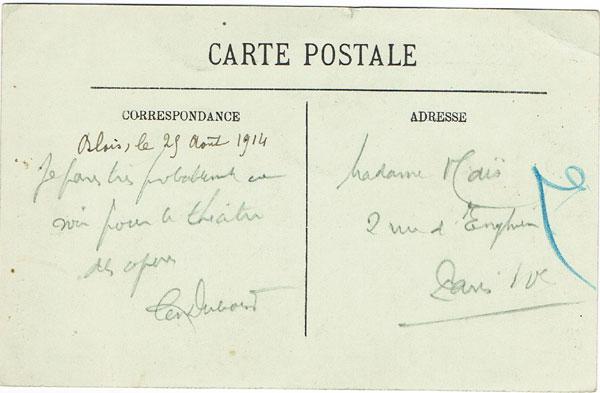 CARTE POSTALE
CORRESPONDANCE
Blois, le 29 Août 1914
Je pars très probablement ce
soir pour le théâtre
des opéra
ADRESSE
Madame Maïs
2 rue d'Enghien
Paris